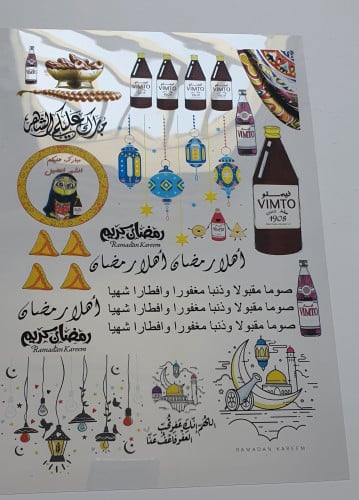 فيمتو
VIMTO
فيمتو
VIMTO
فيمتو
VIMTO
فيمتو
VIMTO
مبارك عليكم الشهر
VIMTO
مبارك عليكم
الشهر الفضيل
فيمتو
VIMTO
1908
رمضان كريم
Ramadan Kareem
أهلا رمضان أهلا رمضان
VIMTO
أهلا رمضان
صوما مقبولا وذنبا مغفورا وافطارا شهيا
صوما مقبولا وذنبا مغفورا وافطارا شهيا
صوما مقبولا وذنبا مغفورا وافطارا شهيا
رمضان كريم
Ramadan Kareem
اللهم إنك عفو تحب
العفو فاعف عنا
RAMADAN KAREEM